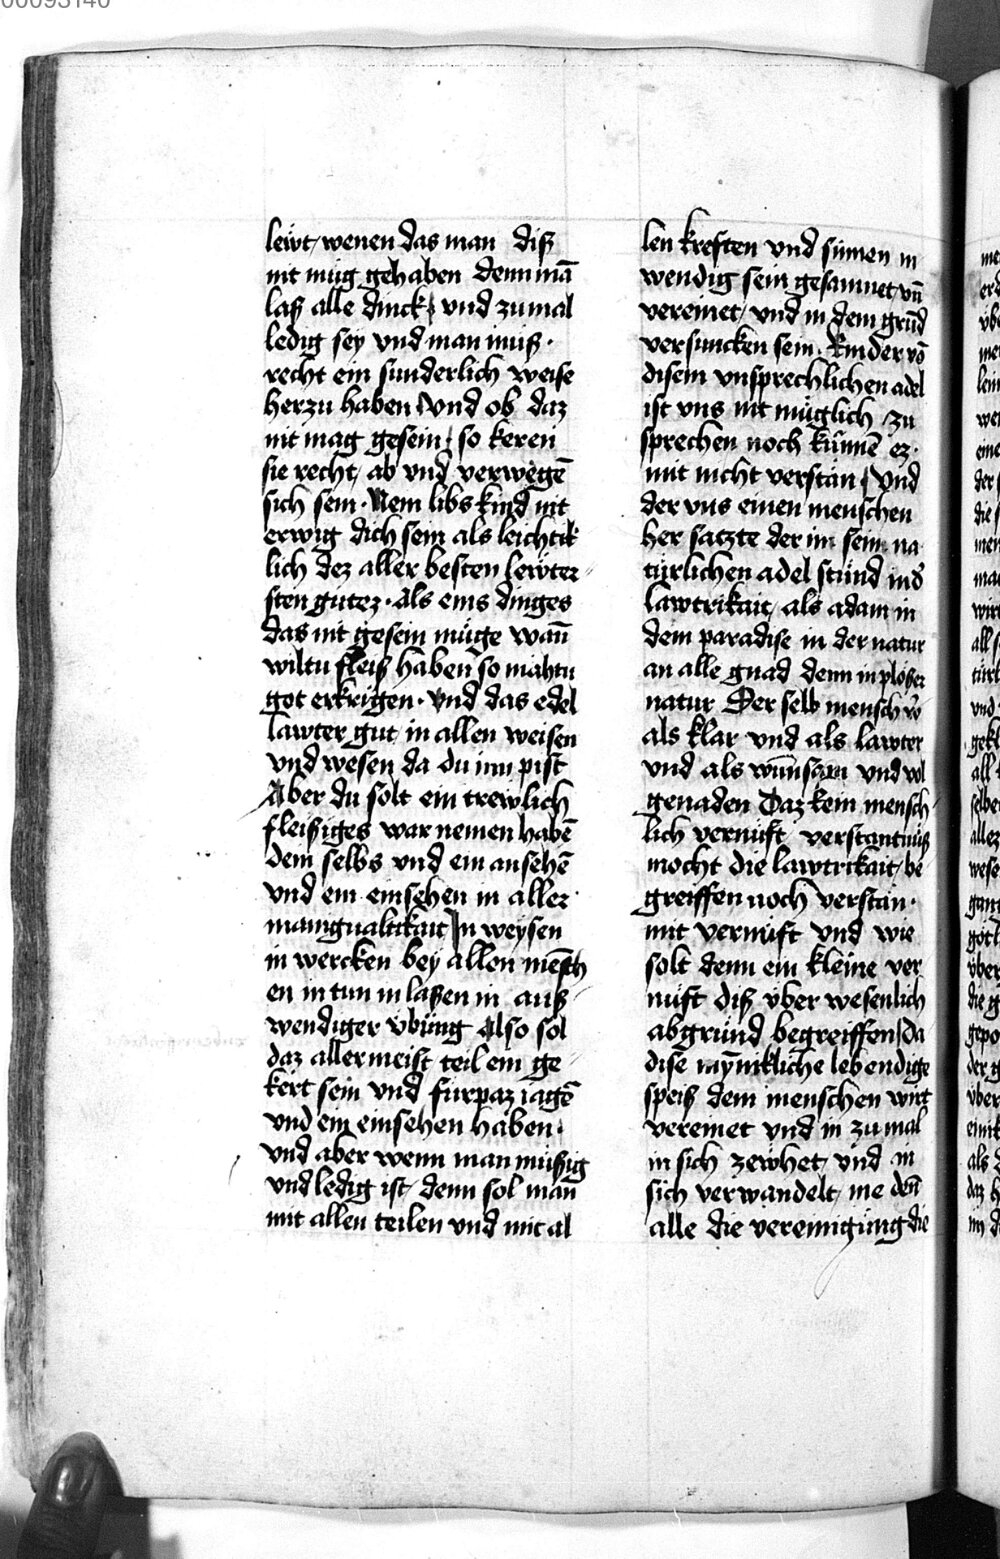 00093140
lewt, wenen das man diß
nit müg gehaben denn mā
laß alle dinck, vnd zumal
ledig sey vnd man muß.
recht ein sunderlich weise
herzu haben Vnd ob daz
nit mag gesein, so keren
sie recht, ab vnd verwegē
sich sein. Nem libs kind nit
erwig dich sein als leichtik
lich dez aller besten lewter
sten gutez. Als eins dinges
das nit gesein müge wañ
wiltu fleiß haben so mahtu
got erkrigen. Vnd das edel
lawter gut in allen weisen
vnd wesen da du inn pist
Aber du solt ein trewlich
fleissiges war nemen habē
dein selbs vnd ein ansehē
vnd ein einsehen in aller
manigualtikait In weysen
in wercken bey allen mēsch
en in tun in laßen in auß
wendiger vbüng Also sol
daz allermeist teil ein ge
kert sein vnd fürpaz iagē
vnd ein einsehen haben.
vnd aber wenn man müssig
vnd ledig ist, denn sol man
mit allen teilen vnd mit al
len kreften vnd sinnen in
wendig sein gesamnet vn̄
vereinet, vnd in dem grūd
versuncken sein. Kinder vō
disem vnsprechlichen adel
ist vns nit müglich zu
sprechen noch künnē ez.
mit nicht verstan, Vnd
der vns einen menschen
her satzte der im sein na
türlichen adel stünd in d̄
lawtrikait, als adam in
dem paradise in der natur
an alle gnad denn in ploßer
natur Der selb mensch
als klar vnd als lawter
vnd als wunsam vnd vol
genaden Daz kein mensch
lich vernüft verstantnüß
mocht die lawtrikait, be
greiffen noch verstan.
mit vernüft vnd wie
solt denn ein kleine ver
nüft diß über wesenlich
abgründ begreiffen, Da
dise mynikliche lebendige
speiß dem menschen wirt
vereinet vnd in zu mal
in sich zewhet, vnd in
sich verwandelt, me deñ
alle die vereinigung die